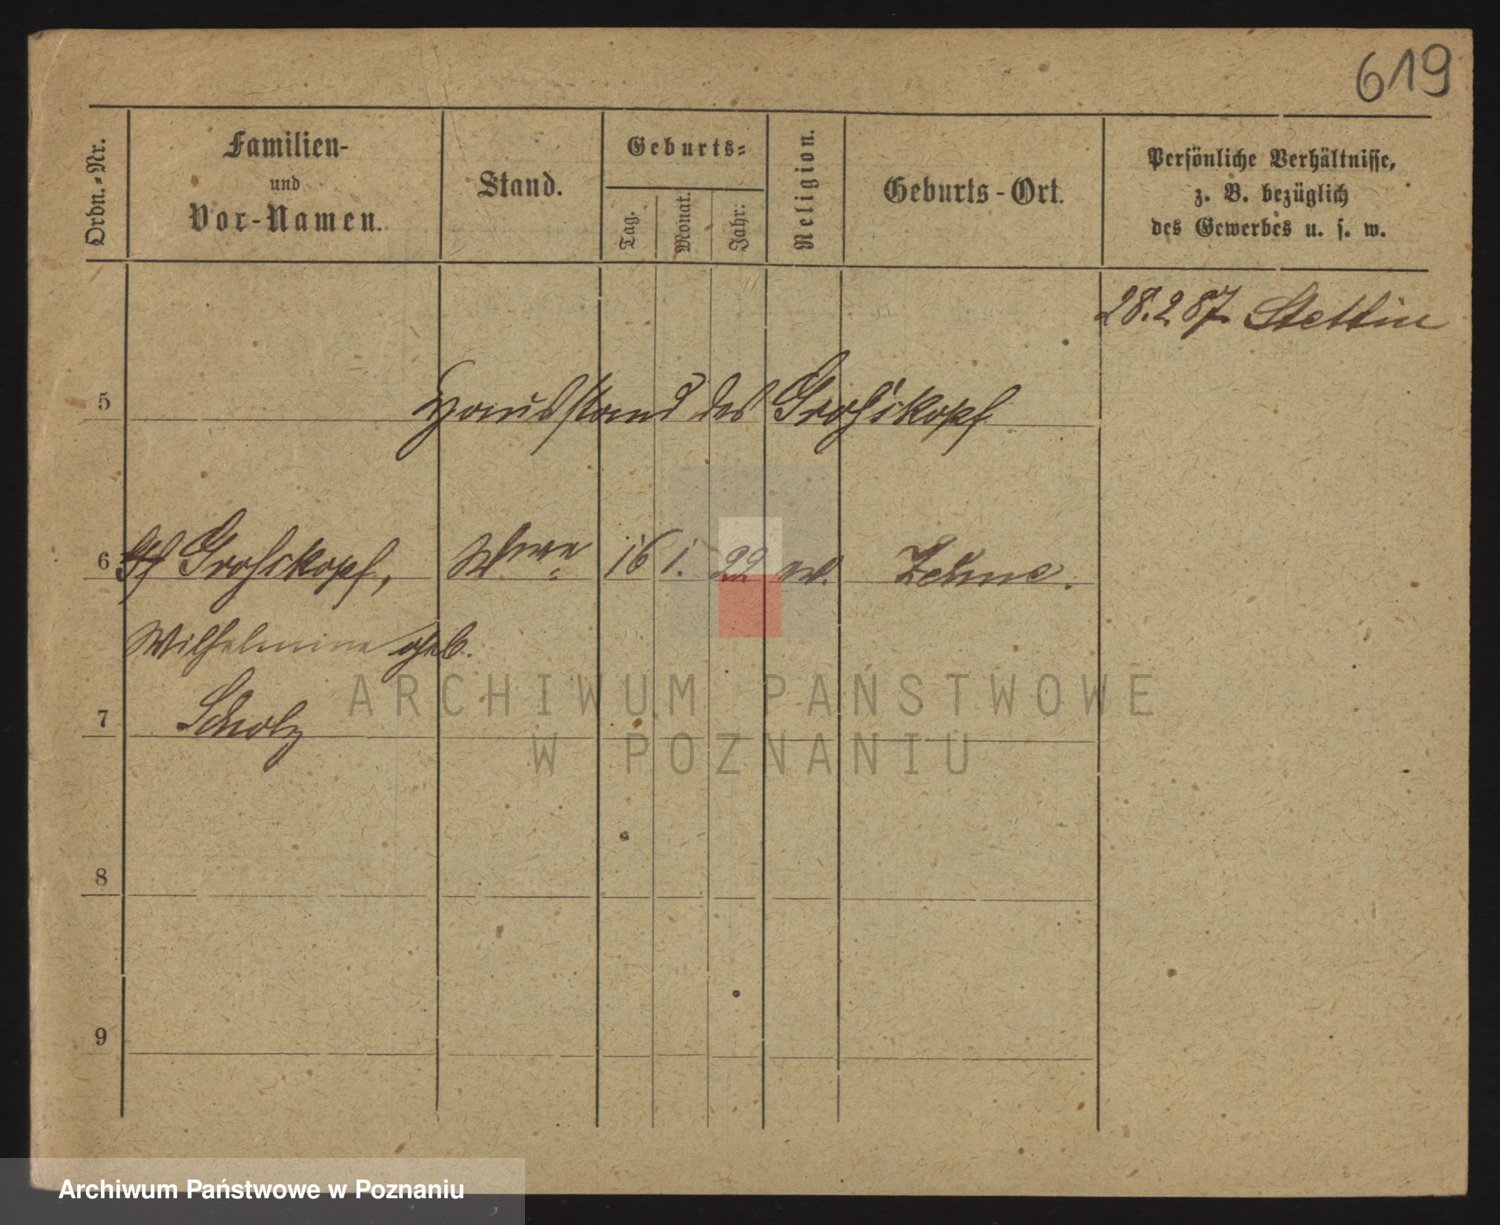 619
Ordn.-Nr.
Familien-
und
Vor-Namen.
Stand.
Geburts-
Tag.
Monat.
Jahr:
Religion.
Geburts-Ort.
Persönliche Verhältnisse,
z. B. bezüglich
des Gewerbes u. s. w.
28.2.87. Stettin
5
Hausstand des Großkopf
6
Großkopf,
Wwe
16
1.
22
ev.
Wilhelmine geb.
7
Scholz
8
9
ARCHIWUM PAŃSTWOWE
W POZNANIU
Archiwum Państwowe w Poznaniu